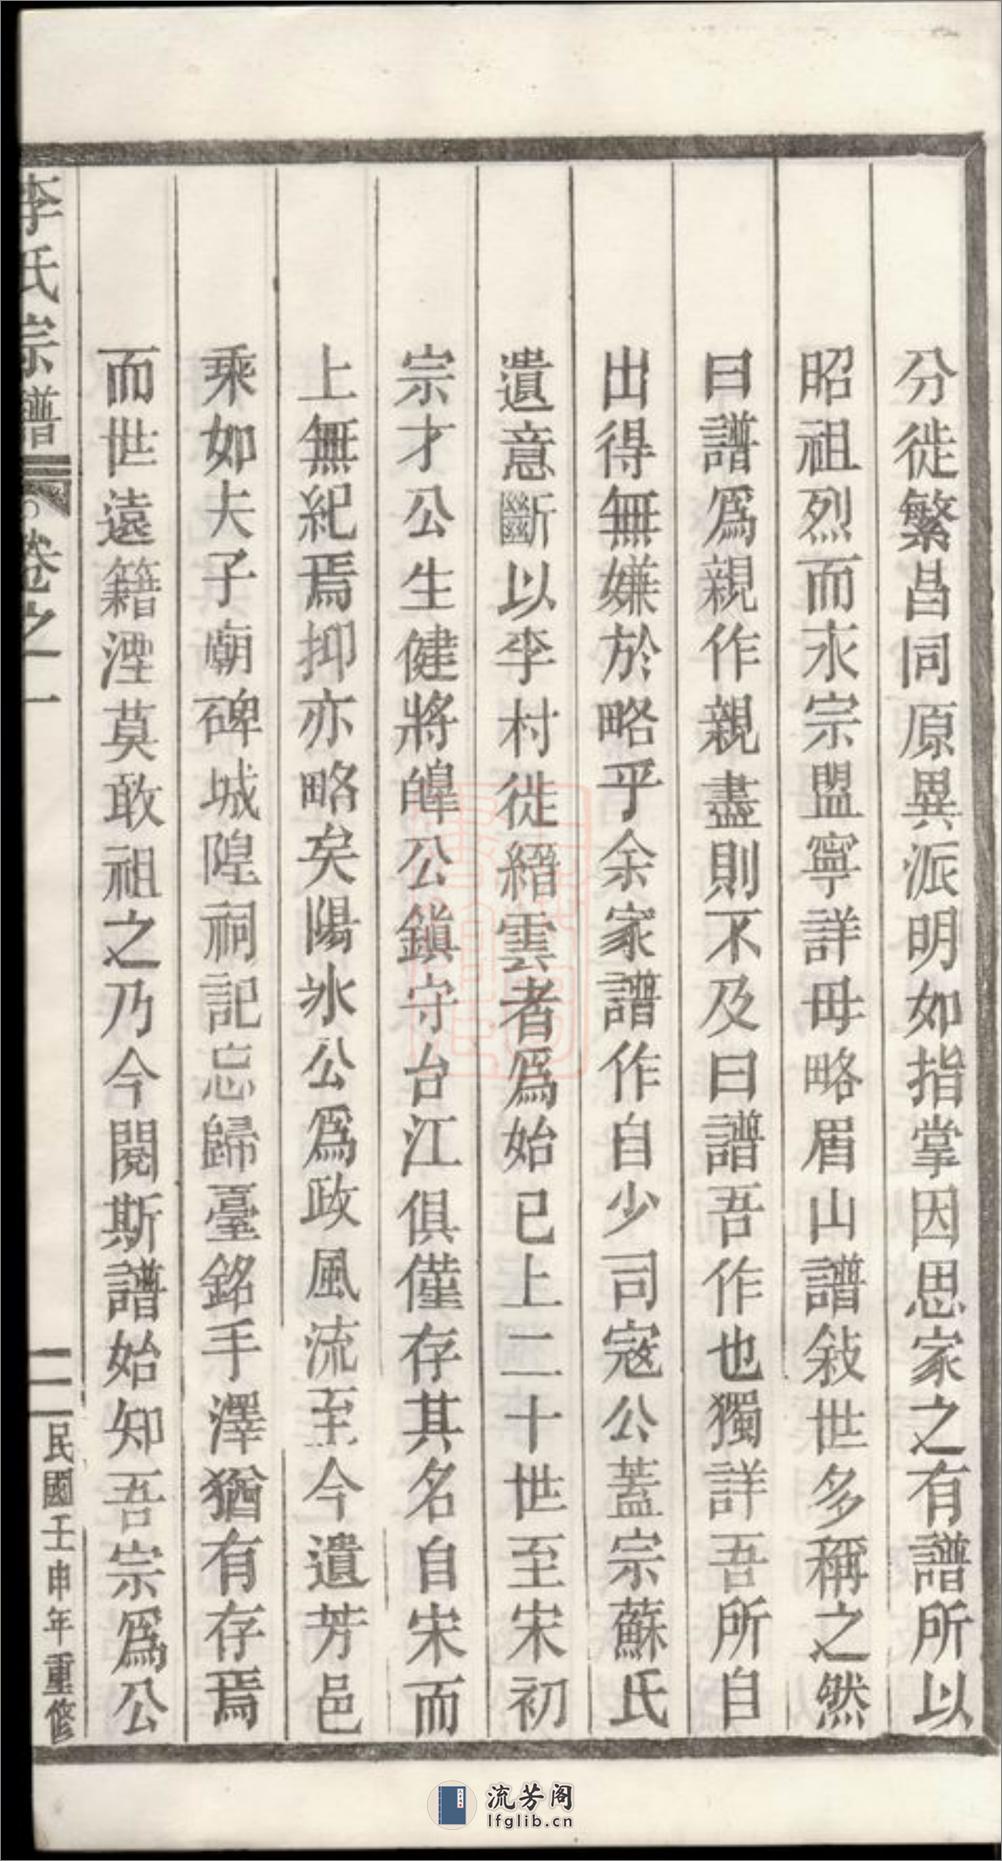 分徙繁昌同原異派明如指掌因思家之有譜所以
昭祖烈而永宗盟寧詳毋略眉山譜敍世多稱之然
曰譜爲親作親盡則不及曰譜吾作也獨詳吾所自
出得無嫌於略乎余家譜作自少司寇公蓋宗蘇氏
遺意斷以李村徙縉雲者爲始已上二十世至宋初
宗才公生健將皥公鎮守台江俱僅存其名自宋而
上無紀焉抑亦略矣陽氷公爲政風流至今遺芳邑
乘如夫子廟碑城隍祠記忘歸臺銘手澤猶有存焉
而世遠籍湮莫敢祖之乃今閱斯譜始知吾宗爲公
李氏宗譜 卷之一 二 民國壬申年重修
流芳阁
lfglib.cn